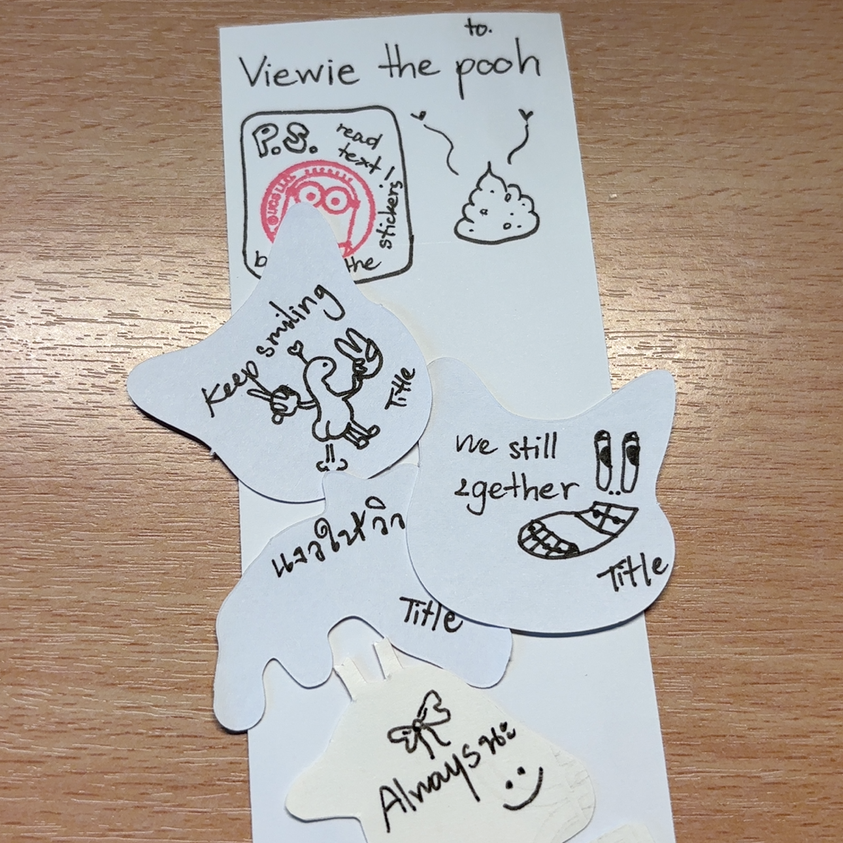 to.
Viewie the pooh
P.S. read
text!
the stickers
Keep smiling
Title
We still
2gether
Title
แงวให้วิว
Title
Always นะ